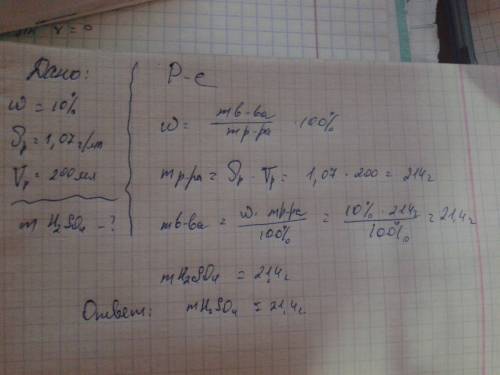 Дано:
w = 10%
ρр = 1,07 г/мл
Vр = 200 мл
m H₂SO₄ - ?
Р-е
w = mв-ва / mр-ра · 100%
mр-ра = ρр · Vр = 1,07 · 200 = 214г
mв-ва = w · mр-ра / 100% = 10% · 214г / 100% = 21,4г
mH₂SO₄ = 21,4г
Ответ: mH₂SO₄ = 21,4г